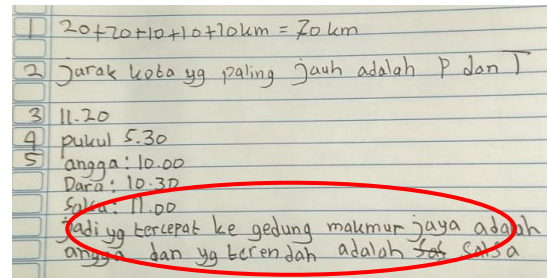 1 20+20+10+10+10km = 70 km
2 Jarak kota yg paling jauh adalah P dan T
3 11.20
4 pukul 5.30
5 angga: 10.00
Dara: 10.30
Salsa: 11.00
jadi yg tercepat ke gedung makmur jaya adalah
angga dan yg terendah adalah Salsa